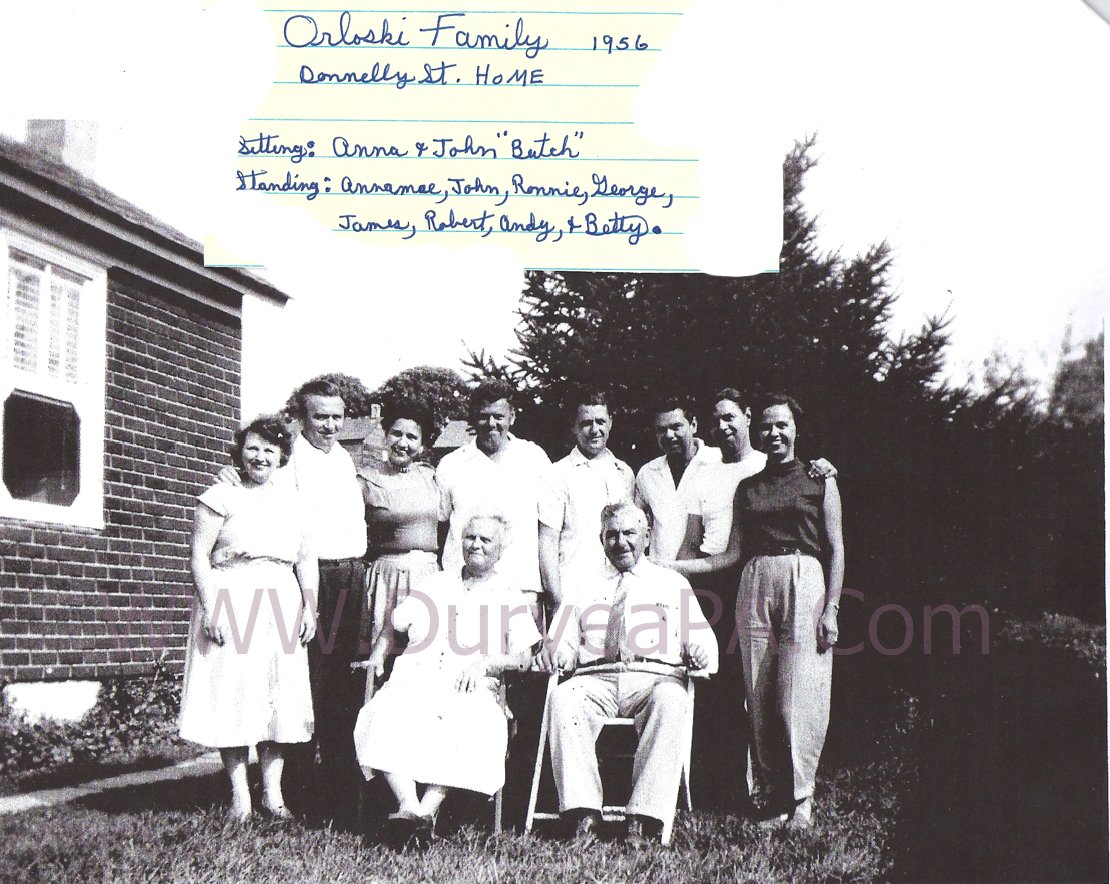 Orloski Family 1956
Donnelly St. HOME
Sitting: Anna & John "Butch"
Standing: Annamae, John, Ronnie, George,
James, Robert, Andy, & Betty.
WWW.DuryeaPA.Com